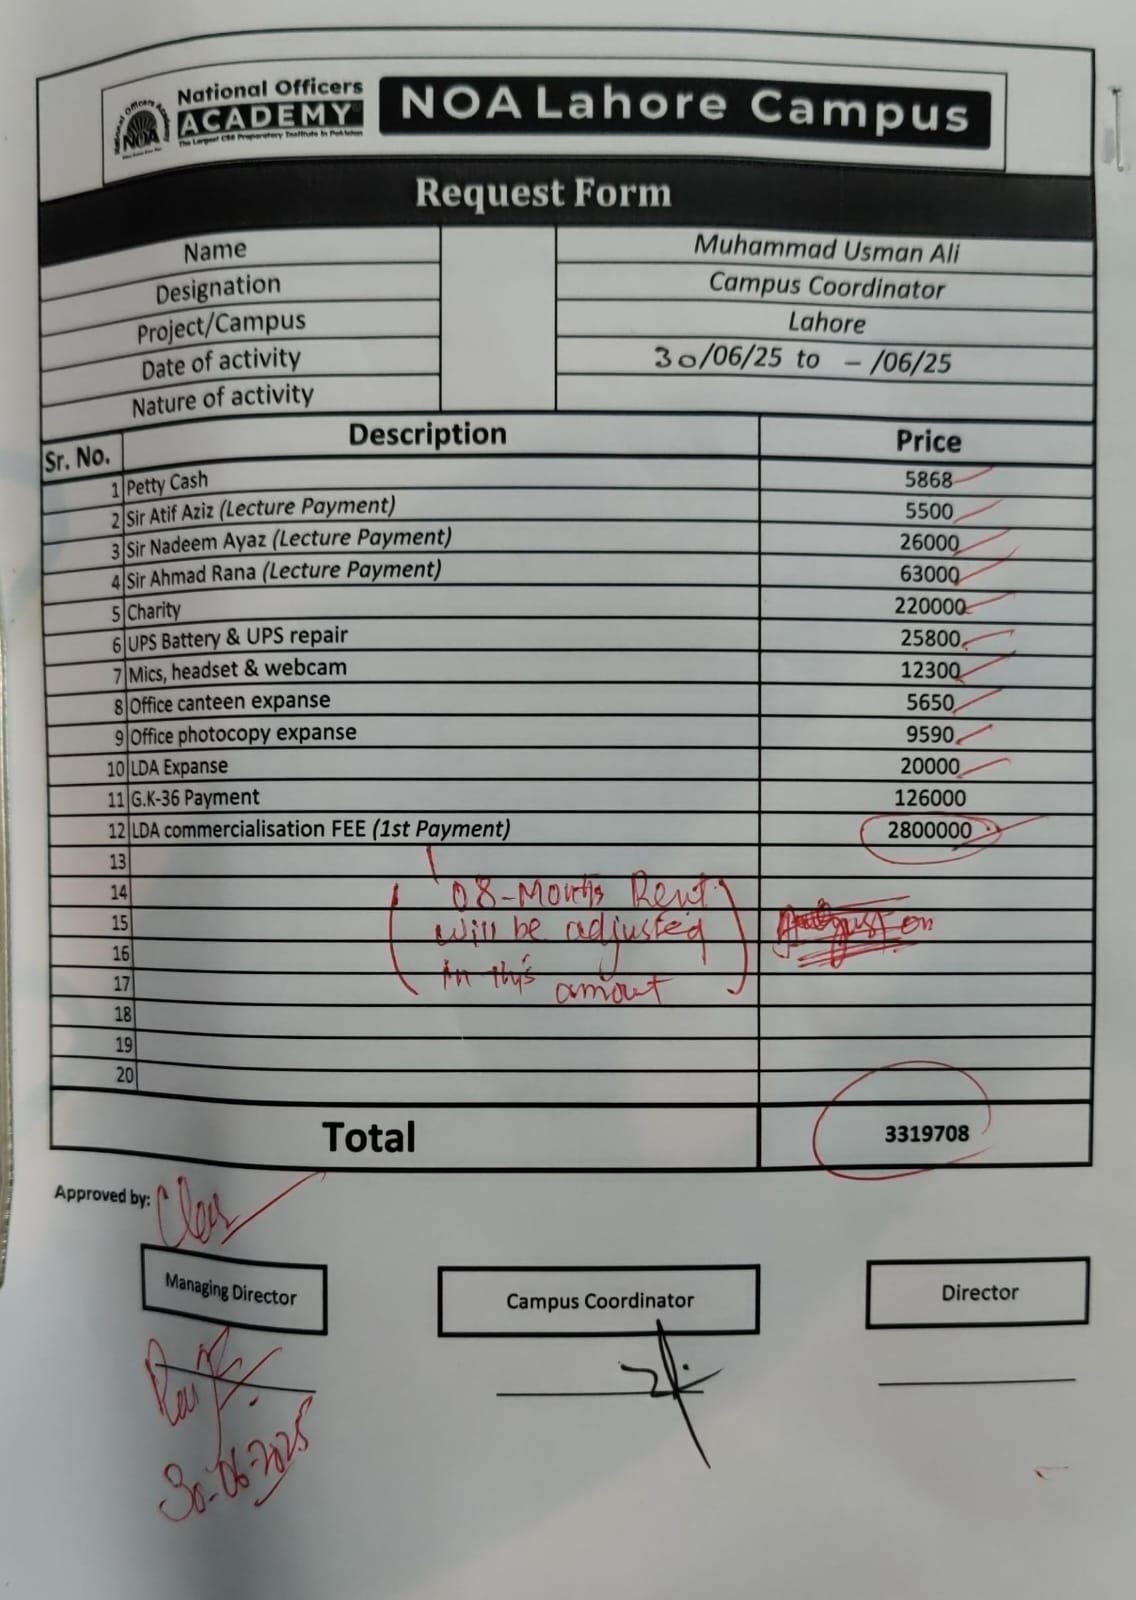 National Officers
ACADEMY
The Largest CSS Preparatory Institute in Pakistan
NOA
NOA Lahore Campus
Request Form
Name Muhammad Usman Ali
Designation Campus Coordinator
Project/Campus Lahore
Date of activity 30/06/25 to - /06/25
Nature of activity
Sr. No. Description Price
1 Petty Cash 5868
2 Sir Atif Aziz (Lecture Payment) 5500
3 Sir Nadeem Ayaz (Lecture Payment) 26000
4 Sir Ahmad Rana (Lecture Payment) 63000
5 Charity 220000
6 UPS Battery & UPS repair 25800
7 Mics, headset & webcam 12300
8 Office canteen expanse 5650
9 Office photocopy expanse 9590
10 LDA Expanse 20000
11 G.K-36 Payment 126000
12 LDA commercialisation FEE (1st Payment) 2800000
13
14 (08-Months Rent
15 will be adjusted on
16 in this
17 amount)
18
19
20
Total 3319708
Approved by:
Managing Director Campus Coordinator Director
30-06-2025